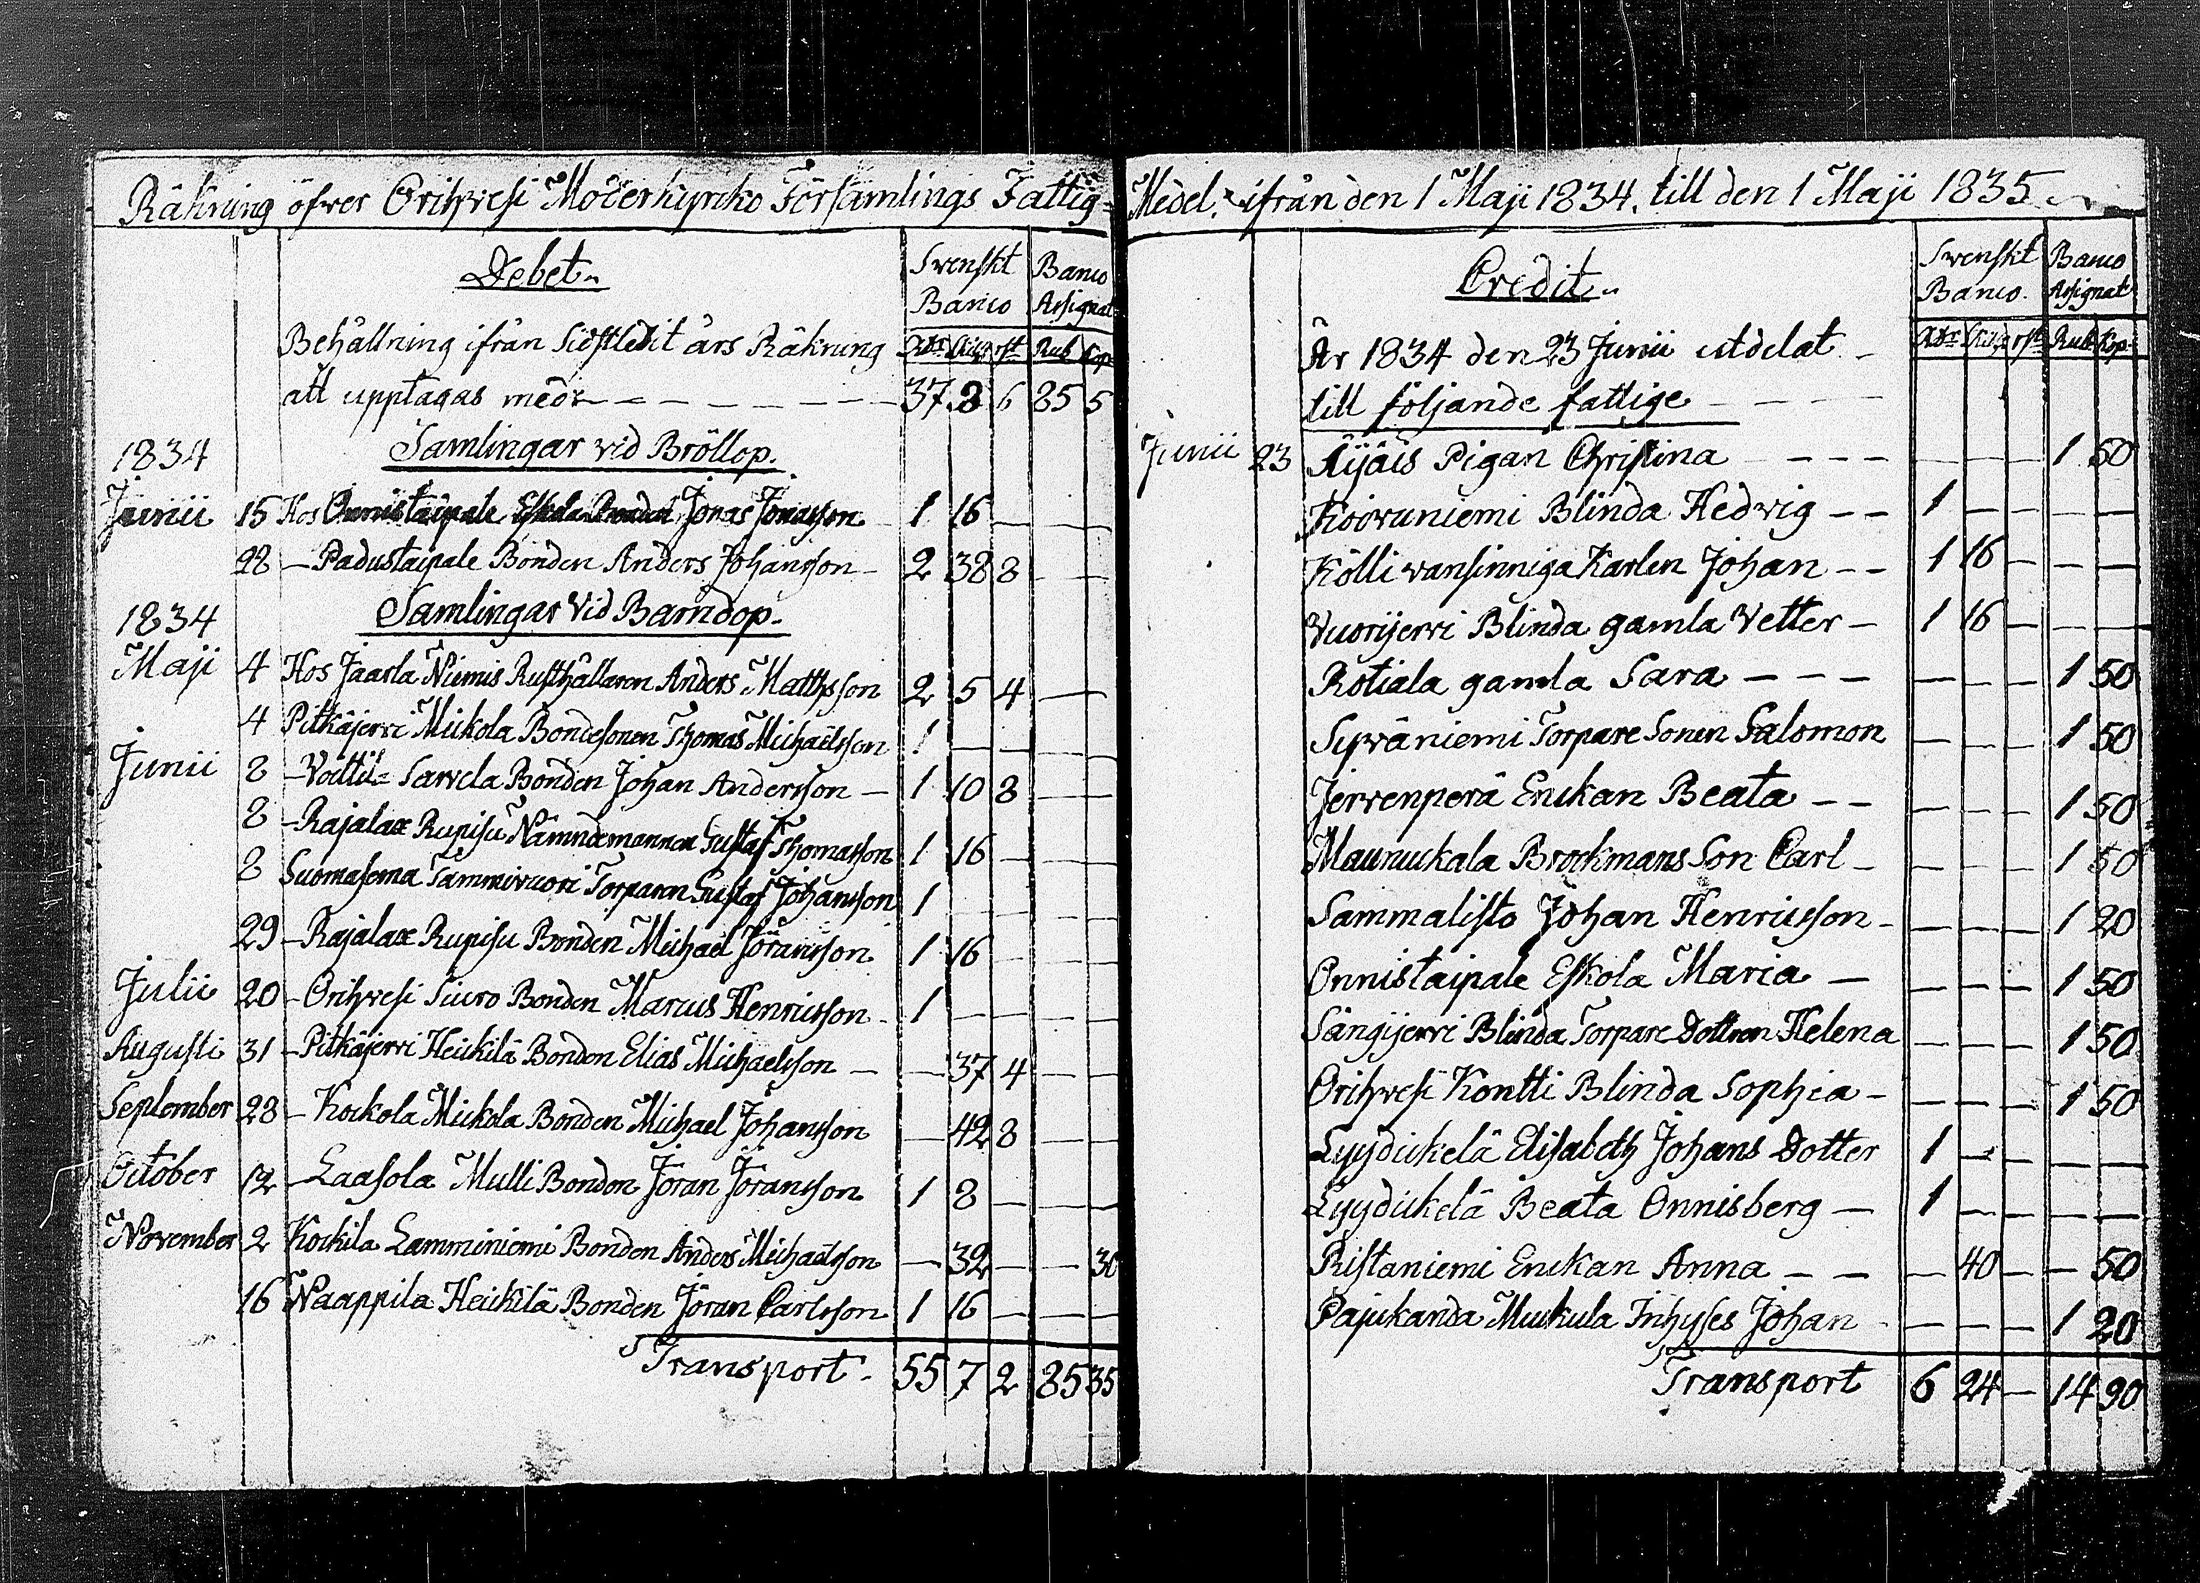 Räkning öfwer Orihwesi Moderkyrcko Församlings Fattig=
Debet
Svenskt Banco
Banco Assignat
Rdr Skill rst Rub Kop
Behållning ifrån sidstledit års Räkning
att upptagas med 37 8 6 85 5
1834 Samlingar vid Bröllop.
Junii 15 Hos Onnistaipale Eskola Bonden Jonas Jonasson 1 16 — — —
22 — Padustaipale Bonden Anders Johansson — 2 38 8 — —
1834 Samlingar Vid Barndop.
Maji 4 Hos Jaarla Niemis Rusthållaren Anders Mattsson 2 5 4 — —
4 Pitkäjervi Mickola Bondesonen Thomas Michaelsson 1 — — — —
Junii 8 — Voitti= Sarvela Bonden Johan Andersson — 1 10 8 — —
8 — Rajalax Rupisu Nämndemannen Gustaf Thomasson 1 16 — — —
8 Suomasema Tammivuori Torparen Gustaf Johansson 1
29 — Rajalax Rupisu Bonden Michael Jöransson 1 16 — — —
Julii 20 — Orihvesi Siuro Bonden Marcus Henricsson 1 — — — —
Augusti 31 — Pitkäjervi Heickilä Bonden Elias Michaelsson — — 37 4 — —
September 28 — Kockola Mickola Bonden Michael Johansson — 42 8 — —
October 12 — Laasola Mulli Bonden Jöran Jöransson 1 8 — — —
November 2 Kockila Lamminiemi Bonden Anders Michaelsson — 32 — — 30
16 Naappila Heickilä Bonden Jöran Carlsson 1 16 — — —
Transport 55 7 2 85 35
Medel. ifrån den 1 Maji 1834. till den 1 Maji 1835
Credit
Svenskt Banco.
Banco Assignat
Rdr Skill rst Rub Kop
År 1834 den 23 Junii utdelat
till följande fattige
Junii 23 Äijäis Pigan Christina — — — 1 50
Koivuniemi Blinda Hedvig — — 1 — — — —
Kölli vansinniga Karlen Johan — — 1 16 — — —
Vuorijervi Blinda gamla Vetter — 1 16 — — —
Rotiala gamla Sara — — — — — — 1 50
Syväniemi Torpare Sonen Salomon — — — 1 50
Jervenperä Enckan Beata — — — — — 1 50
Maunuckala Brockmans Son Carl — — — — 1 50
Sammalisto Johan Henricsson — — — — 1 20
Onnistaipale Eskola Maria — — — — 1 50
Sängijervi Blinda Torpare Dottren Helena — — — 1 50
Orihvesi Kontti Blinda Sophia — — — — 1 50
Lyydickelä Elisabeth Johans Dotter 1 — — — —
Lyydickelä Beata Onnisberg — 1 — — — —
Ristaniemi Enckan Anna — — — 40 — — 50
Pajukanda Muckula Inhyses Johan — — — 1 20
Transport 6 24 — 14 90